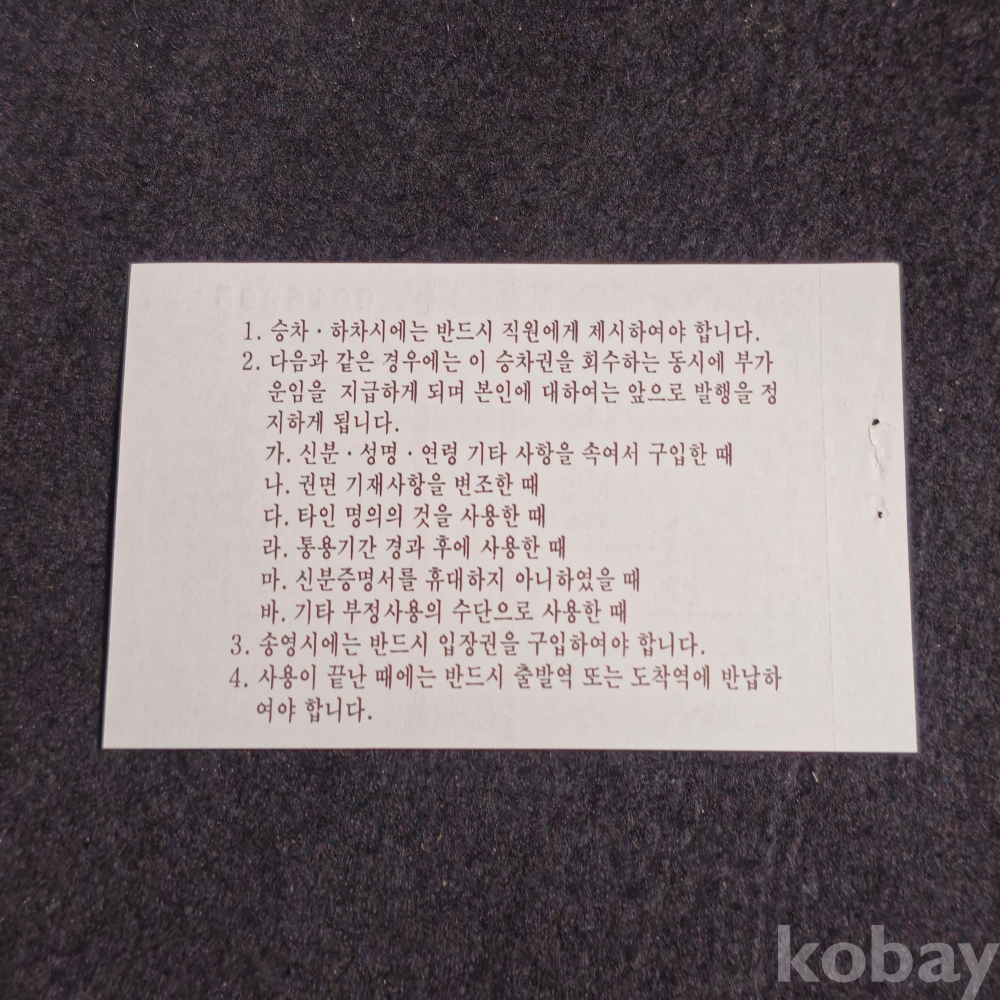 1. 승차·하차시에는 반드시 직원에게 제시하여야 합니다.
2. 다음과 같은 경우에는 이 승차권을 회수하는 동시에 부가
운임을 지급하게 되며 본인에 대하여는 앞으로 발행을 정
지하게 됩니다.
가. 신분·성명·연령 기타 사항을 속여서 구입한 때
나. 권면 기재사항을 변조한 때
다. 타인 명의의 것을 사용한 때
라. 통용기간 경과 후에 사용한 때
마. 신분증명서를 휴대하지 아니하였을 때
바. 기타 부정사용의 수단으로 사용한 때
3. 송영시에는 반드시 입장권을 구입하여야 합니다.
4. 사용이 끝난 때에는 반드시 출발역 또는 도착역에 반납하
여야 합니다.
kobay